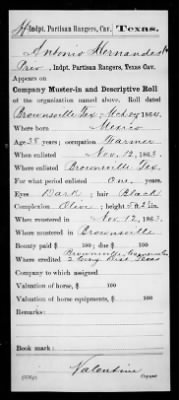 H Indpt. Partisan Rangers, Cav. Texas.
Antonio Hernandes
Priv, Indpt. Partisan Rangers, Texas Cav.
Appears on
Company Muster-in and Descriptive Roll
of the organization named above. Roll dated
Brownsville Tex, 1864.
Where born Mexico
Age 38 years; occupation Farmer
When enlisted Nov. 12, 1863.
Where enlisted Brownsville Tex.
For what period enlisted One years.
Eyes Dark; hair Black
Complexion Olive; height 5 ft. 2 in.
When mustered in Nov 12, 1863.
Where mustered in Brownsville
Bounty paid $ 100; due $ 100
Where credited Brownsville
Texas
Company to which assigned
Valuation of horse, $ 100
Valuation of horse equipments, $ 100
Remarks:
Book mark:
Valentine
Copyist.